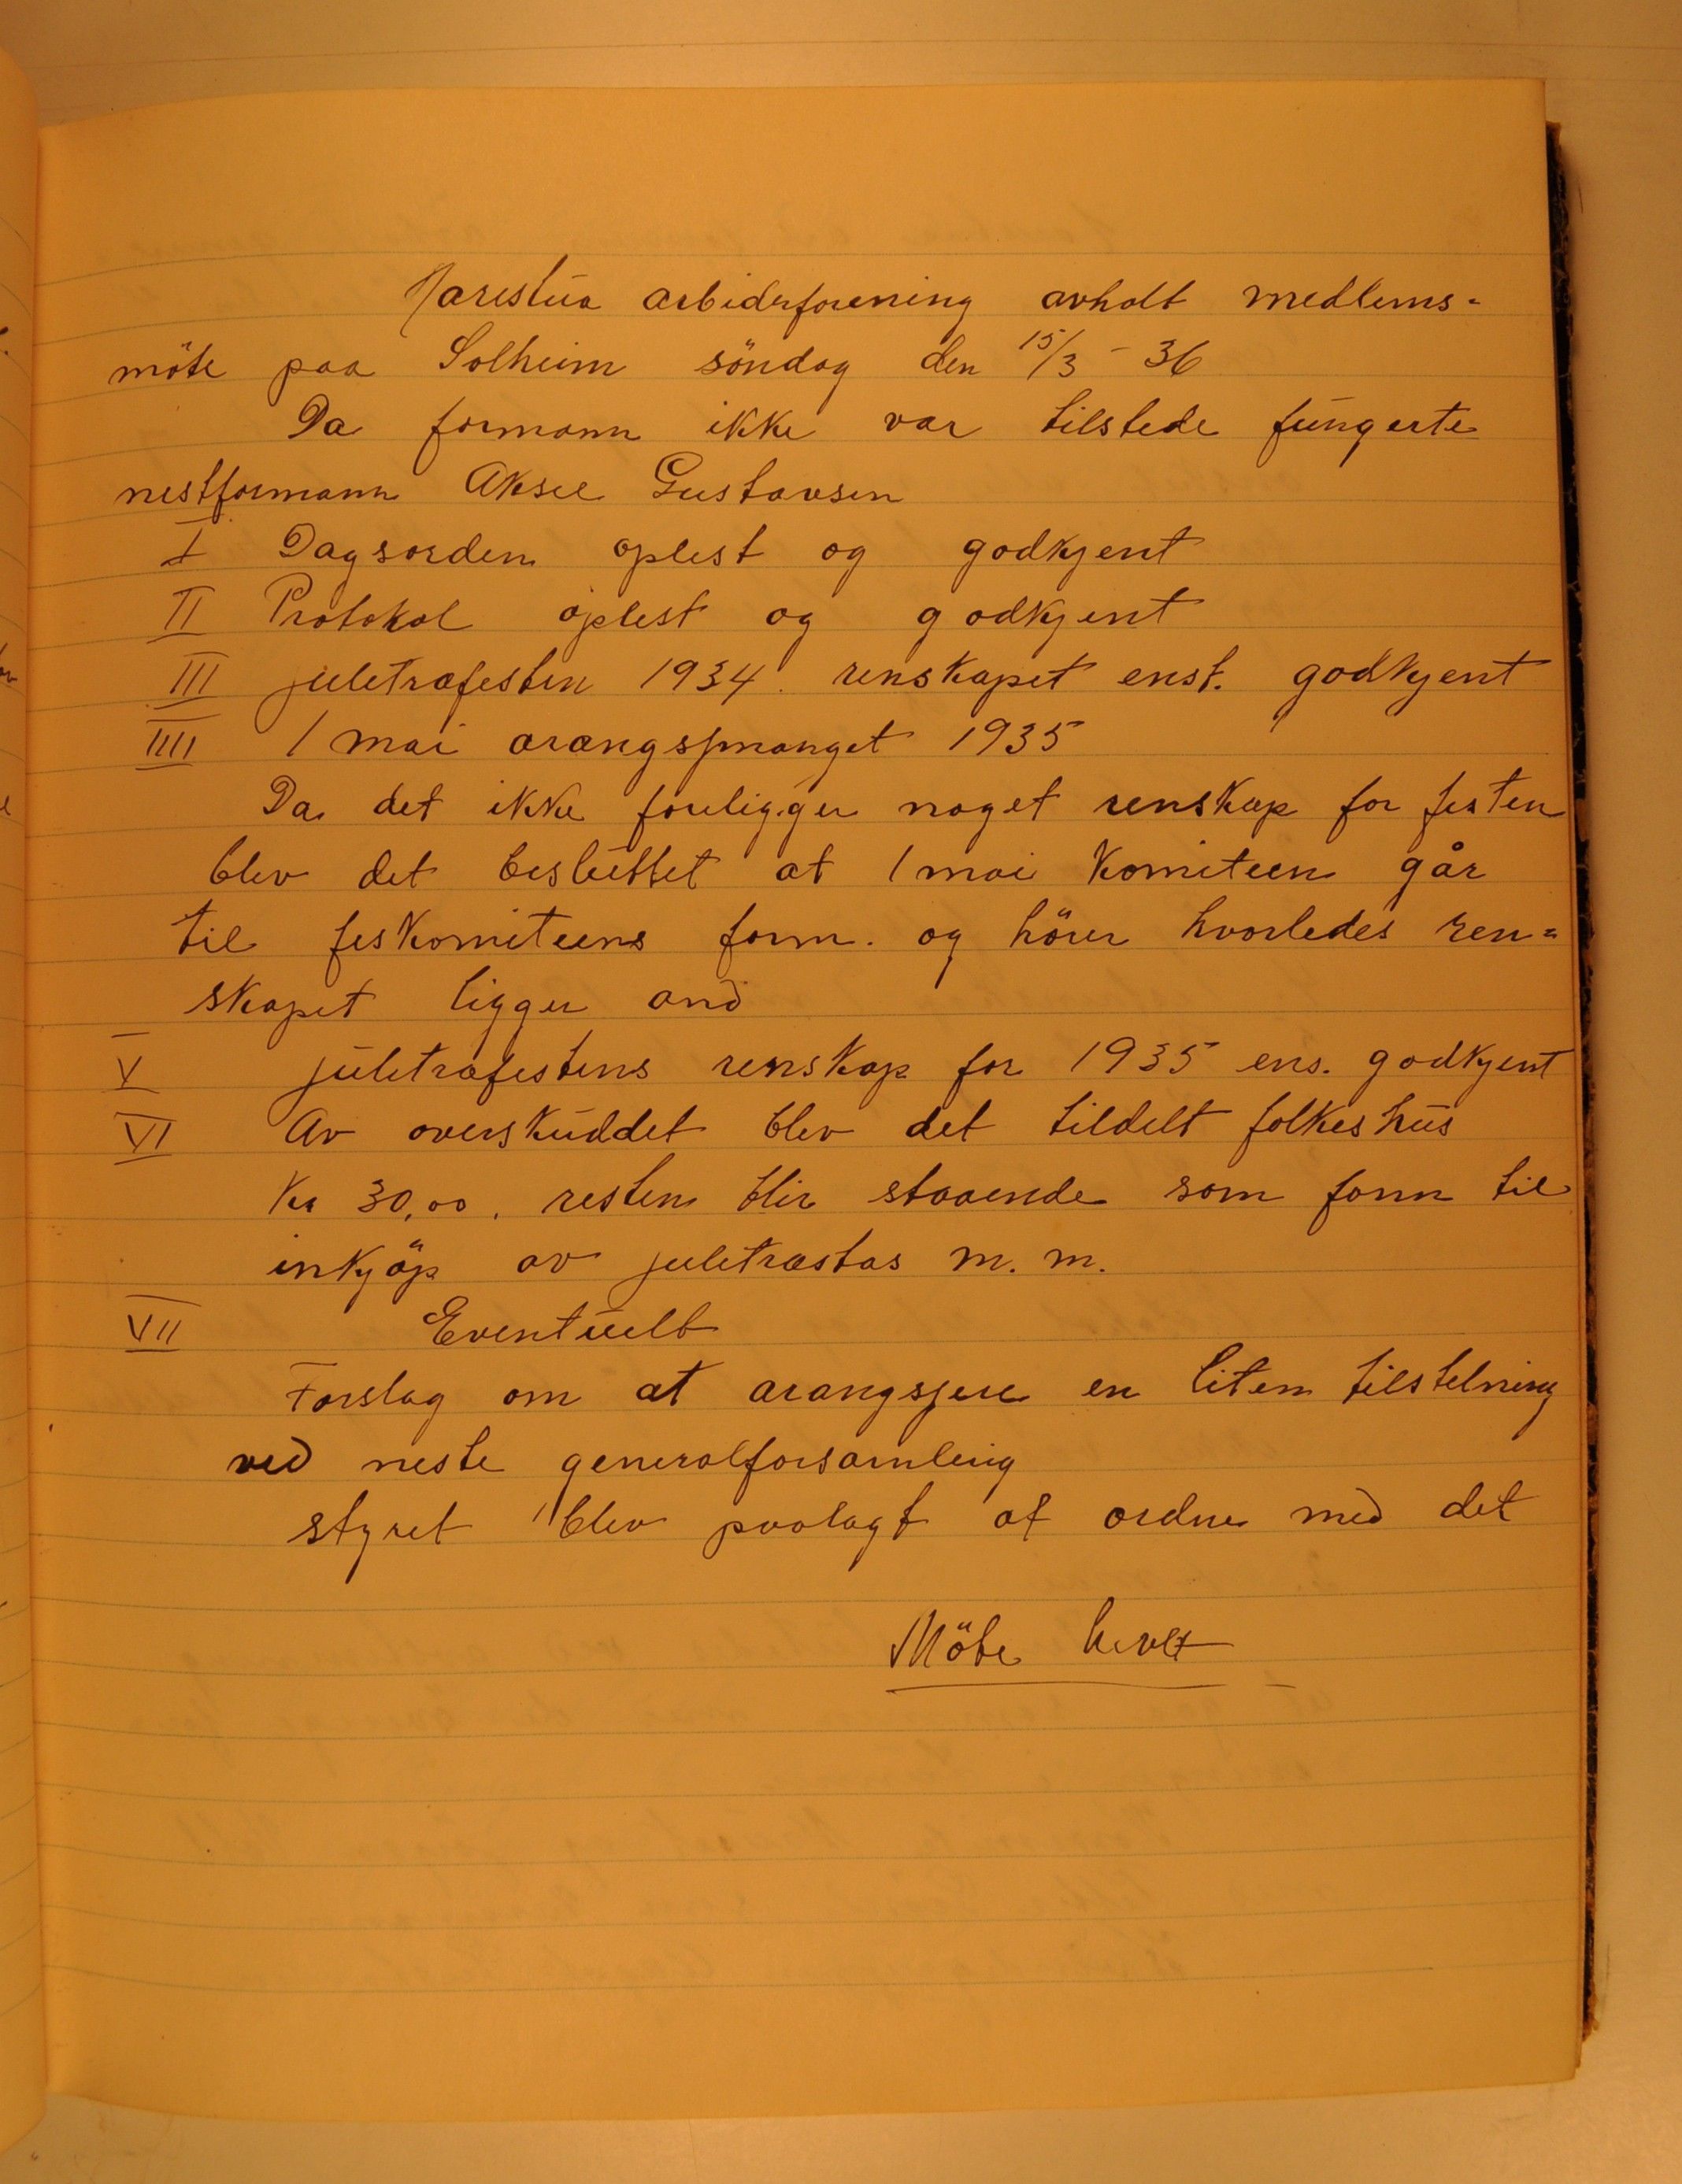 Harestua arbiderforening avholt medlems-
möte paa Solheim söndag den 15/3 - 36
Da formann ikke var tilstede fungerte
nestformann Aksel Gustavsen
I Dagsorden oplest og godkjent
II Protokol oplest og godkjent
III juletrafesten 1934. renskapet enst. godkjent
IIII 1 mai arangsjmanget 1935
Da det ikke foreligger noget renskap for festen
blev det besluttet at 1 mai komiteen går
til feskomiteens form. og hörer hvorledes ren=
skapet ligger and
V juletrafestens renskap for 1935 ens. godkjent
VI Av overskuddet blev det tildelt folkeshus
Kr 30,00. resten blir staaende som fonn til
inkjöp av juletrastas m. m.
VII Eventuelt
Forslag om at arangsjere en liten tilstelning
ved neste generalforsamling
styret blev paalagt at ordne med det
Möte hevet